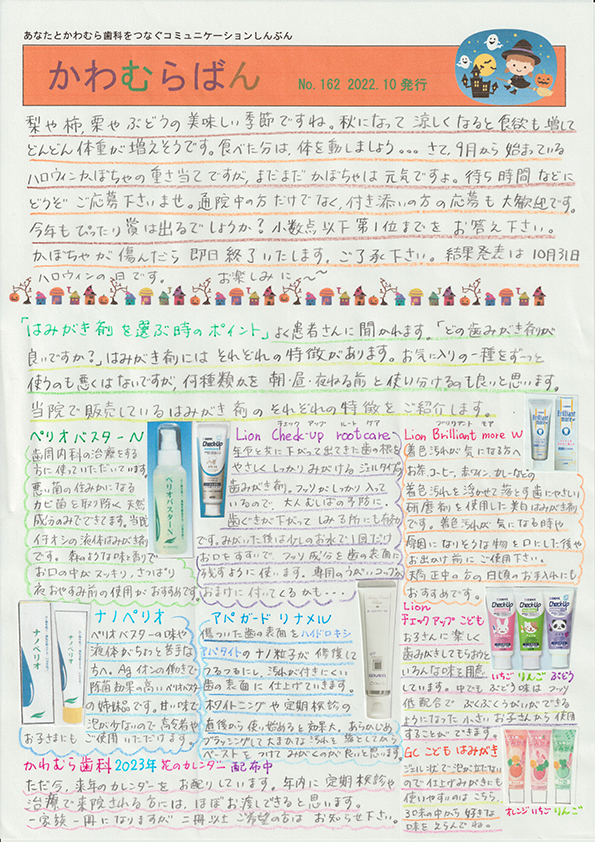 あなたとかわむら歯科をつなぐコミュニケーションしんぶん
かわむらばん
No.162 2022.10発行
梨や柿、栗やぶどうの美味しい季節ですね。秋になって涼しくなると食欲も増して
どんどん体重が増えそうです。食べた分は、体を動しましょう... さて、9月から始まっている
ハロウィンかぼちゃの重さ当てですが、まだまだかぼちゃは元気ですよ。待ち時間などに
どうぞご応募下さいませ。通院中の方だけでなく、付き添いの方の応募も大歓迎です。
今年もぴったり賞は出るでしょうか？小数点以下第1位までをお答え下さい。
かぼちゃが傷んだら即日終了いたします。ご了承下さい。結果発表は10月31日
ハロウィンの日です。 お楽しみに〜〜
「はみがき剤を選ぶ時のポイント」よく患者さんに聞かれます。「どの歯みがき剤が
良いですか？」はみがき剤にはそれぞれの特徴があります。お気に入りの一種をずっと
使うのも悪くはないですが、何種類かを朝・昼・夜ねる前と使い分けるのも良いと思います。
当院で販売しているはみがき剤のそれぞれの特徴をご紹介します。
ペリオバスターN
歯周内科の治療をする
方に使っていただいています。
悪い菌の住みかになる
カビ菌を取り除く天然
成分のみでできます。当院
イチオシの液体はみがき剤
です。森のような味と香りで
お口の中がスッキリ、さっぱり
夜おやすみ前の使用がおすすめです。
ペリオバスターN
チェック アップ ルート ケア
Lion Check-up rootcare
年令と共に下がって出てきた歯の根を
やさしくしっかりみがけるジェルタイプの
歯みがき剤。フッ素がしっかり入って
いるので、大人むし歯の予防に。
歯ぐきが下がってしみる所にも有効
です。みがいた後は少しのお水で1回だけ
お口をすすいで、フッ素成分を歯の表面に
残すように使います。専用のうがいコップが
おまけに付いてくるかも...
ブリリアント モア
Lion Brilliant more W
着色汚れが気になる方へ
お茶、コーヒー、赤ワイン、カレーなどの
着色汚れを浮かせて落とす歯にやさしい
研磨剤を使用した美白はみがき剤
です。着色汚れが気になる時や
原因になりそうな物を口にした後や
お出かけ前にご使用下さい。
矯正中の方の日頃のお手入れにも
おすすめです。
ナノペリオ
ナノペリオ
ペリオバスターの味や
液体がちょっと苦手な
方へ。Agイオンの働きで
除菌効果の高いペリオバスターN
の姉妹品です。甘い味で
泡が少ないので高令者や
お子さまにもご使用いただけます。
アパガードリナメル
傷ついた歯の表面をハイドロキシ
アパタイトのナノ粒子が修復して
つるつるにし、汚れが付きにくい
歯の表面に仕上げていきます。
ホワイトニングや定期検診の
直後から使い始めると効果大。あらかじめ、
ブラッシングして大まかな汚れを落としてから
ペーストをつけてみがくのが良いと思います。
Lion
チェックアップこども
お子さんに楽しく
歯みがきしてもらおうと
いろんな味を用意
しています。中でもぶどう味はフッ素
低配合でぶくぶくうがいができる
ようになった小さいお子さんから使用
することができます。
Check-Up
いちご りんご ぶどう
GCこどもはみがき
ジェル状で泡が立たない
ので仕上げみがきにも
使いやすいのはこちら。
3つの味の中から好きな
味をえらんでね。
オレンジ いちご りんご
かわむら歯科2023年花のカレンダー配布中
ただ今、来年のカレンダーをお配りしています。年内に定期検診や
治療で来院される方には、ほぼお渡しできると思います。
一家族一冊になりますが二冊以上ご希望の方はお知らせ下さい。